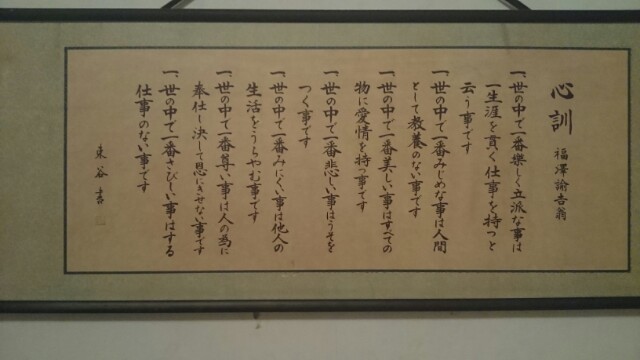 心訓 福澤諭吉翁
一、世の中で一番楽しく立派な事は
一生涯を貫く仕事を持つと
云う事です
一、世の中で一番みじめな事は人間
として教養のない事です
一、世の中で一番美しい事はすべての
物に愛情を持つ事です
一、世の中で一番悲しい事はうそを
つく事です
一、世の中で一番みにくい事は他人の
生活をうらやむ事です
一、世の中で一番尊い事は人の為に
奉仕し決して恩にきせない事です
一、世の中で一番さびしい事はする
仕事のない事です
東谷 書